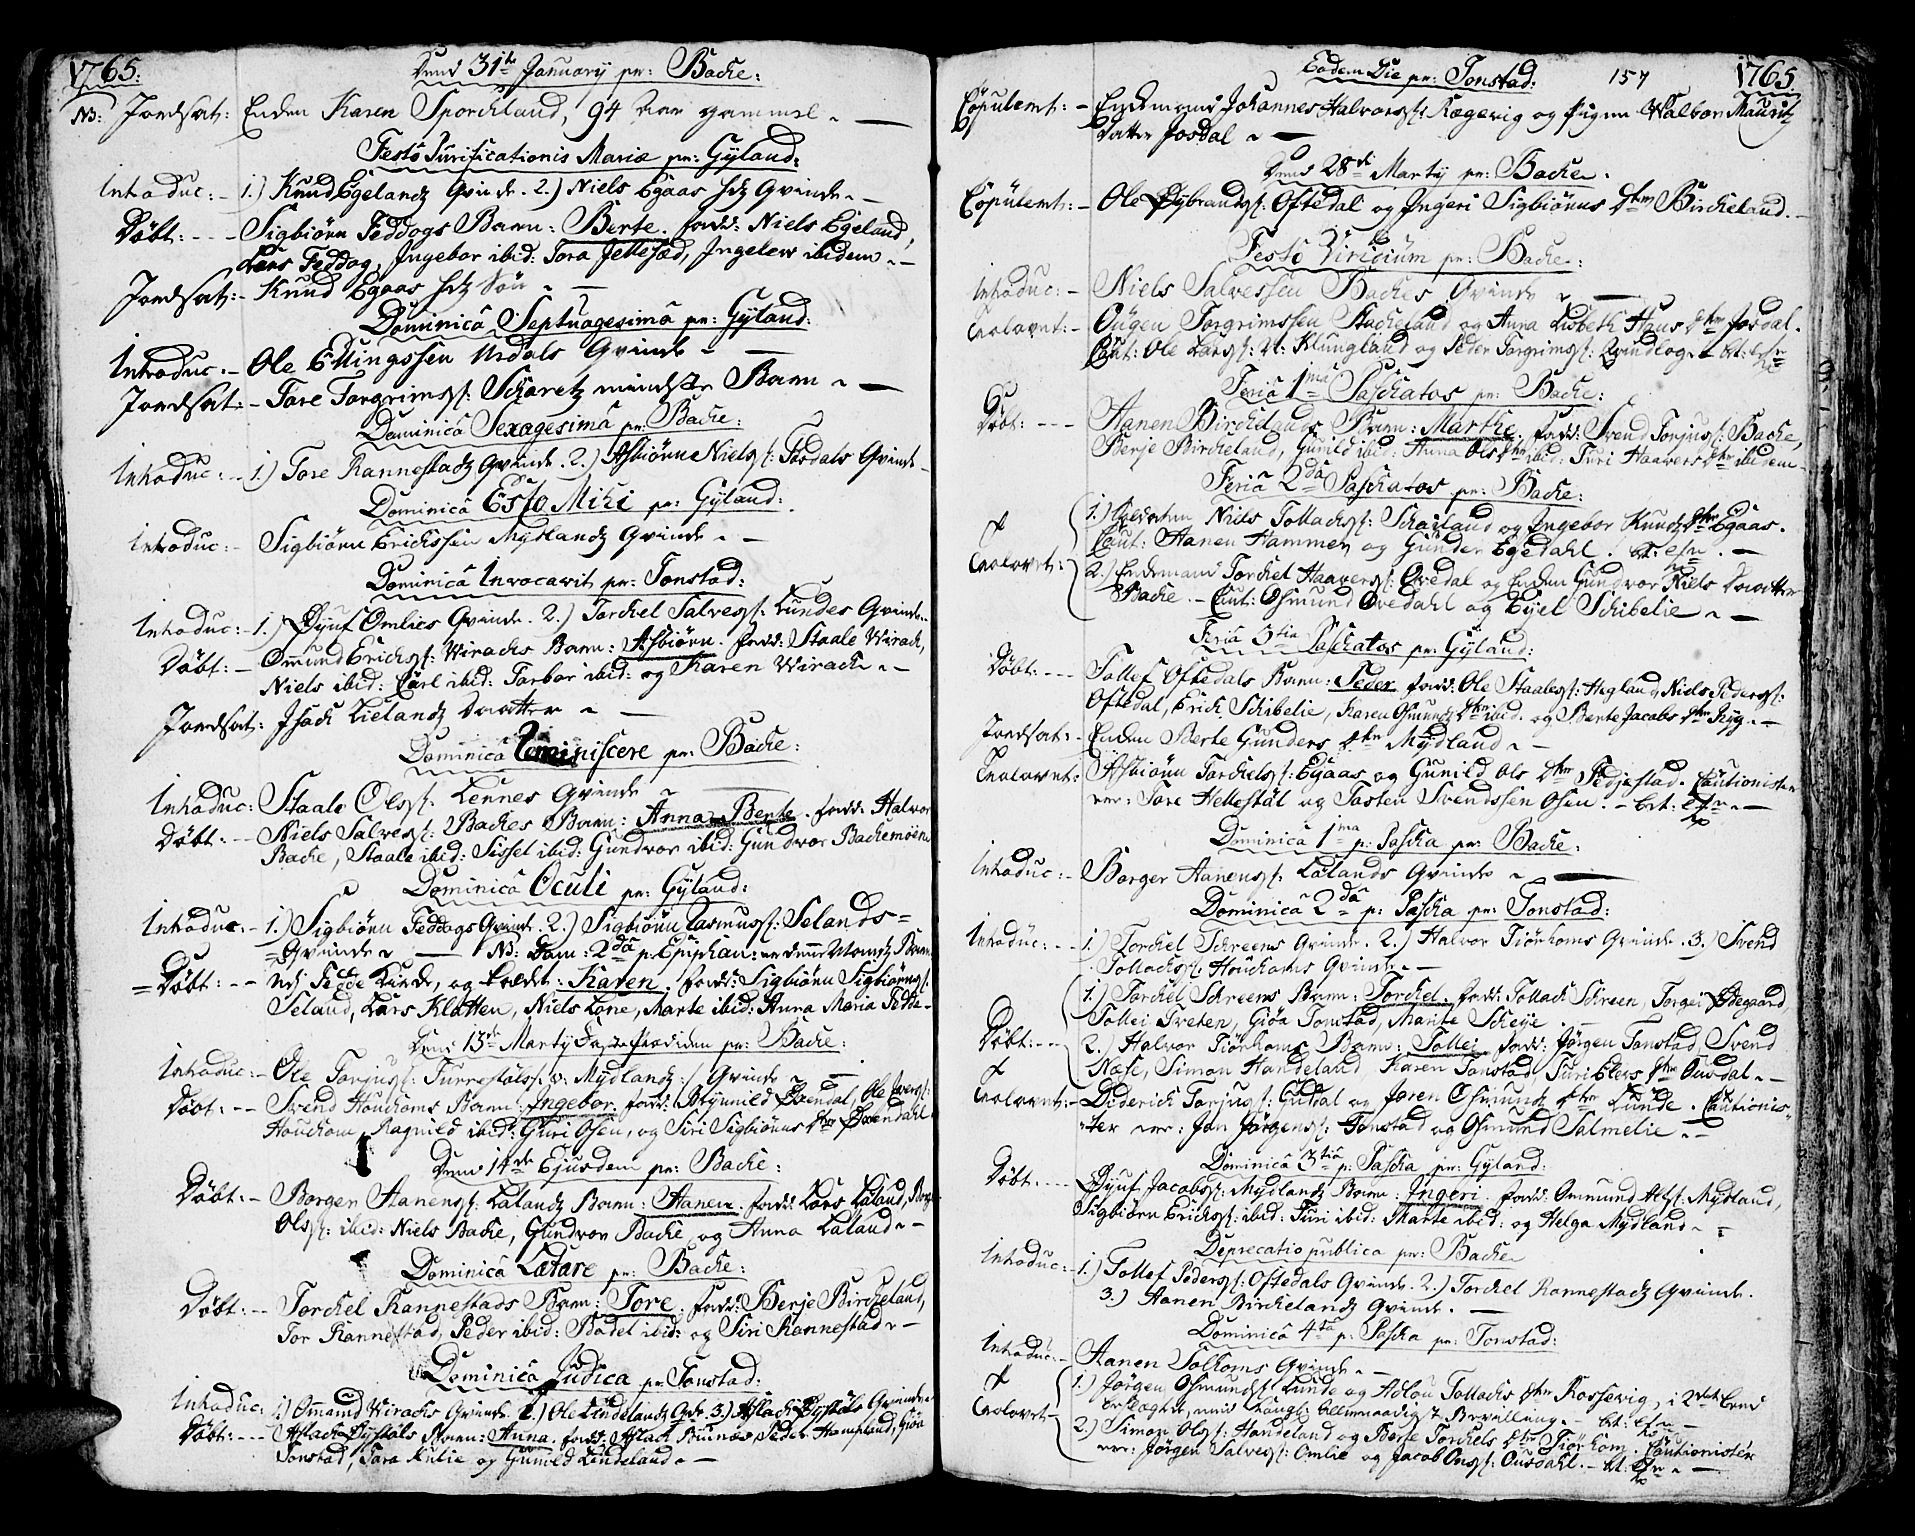 1765.
Dend 31te January pr: Backe:
NB: Jordsat: Enden Karen Sporckland, 94 Aar gammel. —
Festo Purificationis Mariæ pr: Gyland:
Introduc: - 1.) Knud Egelandz Qvinde. 2.) Niels Egaas hdz Qvinde. —
Döbt: - - - Sigbiörn Feddogs Barn: Berte. fadd: Niels Egeland,
Lars Feddog, Ingebor ibid: Tora Jellesæd, Ingelew ibidem. —
Jordsat: - Knud Egaas hdz Sön. —
Dominicâ Septuagesimâ pr: Gyland:
Introduc: - Ole Ellingssen Urdals Qvinde. —
Jordsat: - Tore Torgrims: Skaretz mindste Barn. —
Dominicâ Sexagesimâ pr: Backe:
Introduc: - 1.) Tore Rannestadz Qvinde. 2.) Asbiörn Niels: Josdals Qvinde
Dominicâ Esto Mihi pr: Gyland:
Introduc: - Sigbiörn Erichssen Mydlandz Qvinde. —
Dominicâ Invocavit pr: Tonstad:
Introduc: - 1.) Öyuf Omlies Qvinde. 2.) Torchel Salves: Lundes Qvinde.
Döbt: - Omund Erichs: Wirachs Barn: Asbiörn. fadd: Staale Wirach,
Niels ibid: Carl ibid: Torbor ibid: og Karen Wirach. —
Jordsat: Isach Lielandz Daatter. —
Dominicâ Reminiscere pr: Backe:
Introduc: Staale Ols: Lennes Qvinde
Döbt: - - Niels Salves: Backes Barn: Anna Berte. fadd: Halvor
Backe, Staale ibid: Sissel ibid: Gundvor ibid: Gundvor Backemoene
Dominicâ Oculi pr: Gyland:
Introduc: - 1.) Sigbiörn Feddogs Qvinde. 2.) Sigbiörn Rasmus: Selands=
=Qvinde. — NB: Dom: 2dâ p: Epiphan: er denne Mandz Barn
=Döbt: - - ved Fedde Kirke, og kaldet: Karen. fadd: Sigbiörn Sigbiörns:
Seland, Lars Klatten, Niels Lone, Marte ibid: Anna Maria Fedde. —
Dend 13de Marty Faste Prædiken pr: Backe:
Introduc: - Ole Torjus: Turrestöls: v: Mydlandz: Qvinde —
Döbt: - - Svend Houckoms Barn: Ingebor. fadd: Ole Ivers:
Houckom, Ragnild ibid: Guri Osen, og Siri Sigbiörns dtter
Dend 14de Ejusdem pr: Backe:
Döbt: - Borger Aanens: Lalandz Barn: Aanen. fadd: Lars Laland,
Ols: ibid: Niels Backe, Gundvor Backe, og Anna Laland. —
Dominicâ Lætare pr: Backe:
Döbt: - - Torckel Rannestads Barn: Tore. fadd: Berje Birckeland,
Tor Rannestad, Peder ibid: Bodel ibid: og Siri Rannestad. —
Dominicâ Judica pr: Tonstad:
Introduc: 1.) Ommund Wirachs Qvinde. 2.) Ole Lindelandz Qvde. 3.) Aslach Qvinde.
Döbt: - - - Aslach Barn: Anna. fadd: Aslach Peder Hompland, Giöa
Tonstad, Tora Kulie og Gunild Lindeland. —
Eodem Die pr: Tonstad: 157 1765
Copulent: - Enckemand Johannes Halvors: Kægevig og Pigen Walbor Mauritz
Datter Josdal. —
Dend 28de Marty pr: Backe.
Copulent: - Ole Sybrands: Oftedal og Ingeri Sigbiörns dtter Birckeland. —
Festô Viridium pr: Backe:
Introduc: - Niels Salvessen Backes Qvinde. —
Trolovet: - Ougen Torgrimssen Stackeland og Anna Lisbeth Hans dtter Josdal.
Caut: Ole Lars: N: Klungland og Peder Torgrims: Qvindlog. — bt:
Feriâ 1mâ Paschatos pr: Backe:
Döbt: - - - Aanen Birckelands Barn: Marthe. fadd: Svend Torjus: Backe,
Berje Birckeland, Gunild ibid: Anna Ols dtter ibid: Turi Haavers dtter ibidem —
Feriâ 2dâ Paschatos pr: Backe:
Trolovet: 1.) Soldaten Niels Tollachs: Schaaland og Ingebor Knudz dtter Egaas.
Caut: Aanen Hammer og Gunder Egedahl. bt: —
2.) Enckemand Torckel Haavers: Ovedal og Enden Gundvor Niels Daatter
Backe. - Caut: Osmund Ovedahl og Eyel Schibelie. —
Feriâ 3tiâ Paschatos pr: Gyland:
Döbt: - - - Tollef Oftedals Barn: Peder. fadd: Ole Staales: Hegland, Niels Peders:
Oftedal, Erich Schibelie, Karen Osmundz dtter ibid. og Berte Jacobs dtter Ryg. —
Jordsat: - Enden Berte Gunders dtter Mydland. —
Trolovet: Asbiörn Torckels: Egaas og Gunild Ols dtter Fedjestad. Cautionister
ere: Tore Hellestöl og Tosten Svendssen Osen. — bt: —
Dominicâ 1mâ p: Pascha pr: Backe:
Introduc: - Borger Aanens: Lalands Qvinde. —
Dominicâ 2dâ p: Pascha pr: Tonstad:
Introduc: - - 1.) Torckel Schreens Qvinde. 2.) Halvor Tiörhoms Qvinde. 3.) Svend
Tollachs: Houckoms Qvinde. —
Döbt: - - 1.) Torckel Schreens Barn: Torckel. fadd: Tollach Schreen, Torgei Ödegaard,
Tollei Treten, Giöa Tonstad, Marite Scheye. —
2.) Halvor Tiörhoms Barn: Tollei. fadd: Jörgen Tonstad, Svend
Næse, Simon Handeland, Karen Tonstad, Turi Elevs dtter Ousdal. —
Trolovet: - Diderich Torjus: Gutdal og Joren Osmundz dtter Lunde. Cautionis-
ter ere: Jon Jörgens: Tonstad og Osmund Salmelie. —
Dominicâ 3tiâ p: Pascha pr: Gyland:
Döbt: - - - Öyuf Jacobs: Mydlandz Barn: Ingeri. fadd: Ommund Alfs: Mydland,
Sigbiörn Erichs: ibid: Turi ibid: Marte ibid: og Helga Mydland. —
Deprecatio publica pr: Backe
Introduc: - 1.) Tollef Peders: Oftedals Qvinde. 2.) Torckel Rannestadz Qvinde.
3.) Aanen Birckelandz Qvinde. —
Dominicâ 4tâ p: Pascha pr: Tonstad:
Introduc: - Aanen Solhoms Qvinde. —
Trolovet - 1.) Jörgen Osmunds: Lunde og Adlou Tollachs dtter Rossevig, i 2det Leed
beslægtet, med Kongl: allernaadigst Bevilling. — bt:
2.) Simon Ols: Handeland og Berte Torckels dtter Tiörhom. Cautionister
ere: Jörgen Salves: Omlie og Jacob Ons: Ousdahl. — bt: —